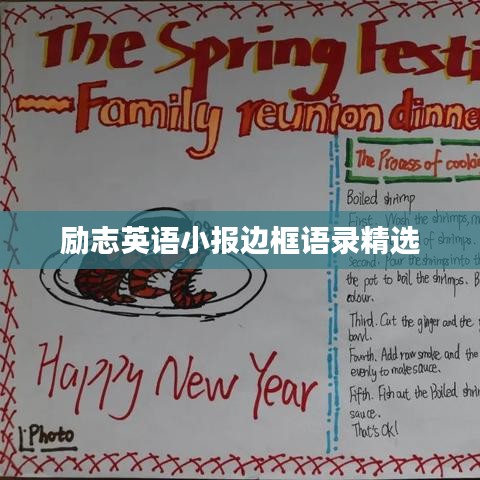 The Spring Festi
Family reunion dinne
The Process of cooki
Boiled shrimp
First. Wash the shrimps, m
of shrimp.
Second. Pour the shrimps into t
the pot to boil the shrimps. B
colour.
Third. Cut the ginger and the
bowl.
Fourth. Add raw smoke and the
evenly to make sauce.
Fifth. Fish out the Boiled shri
sauce.
That's OK!
励志英语小报边框语录精选
Happy New Year
Photo